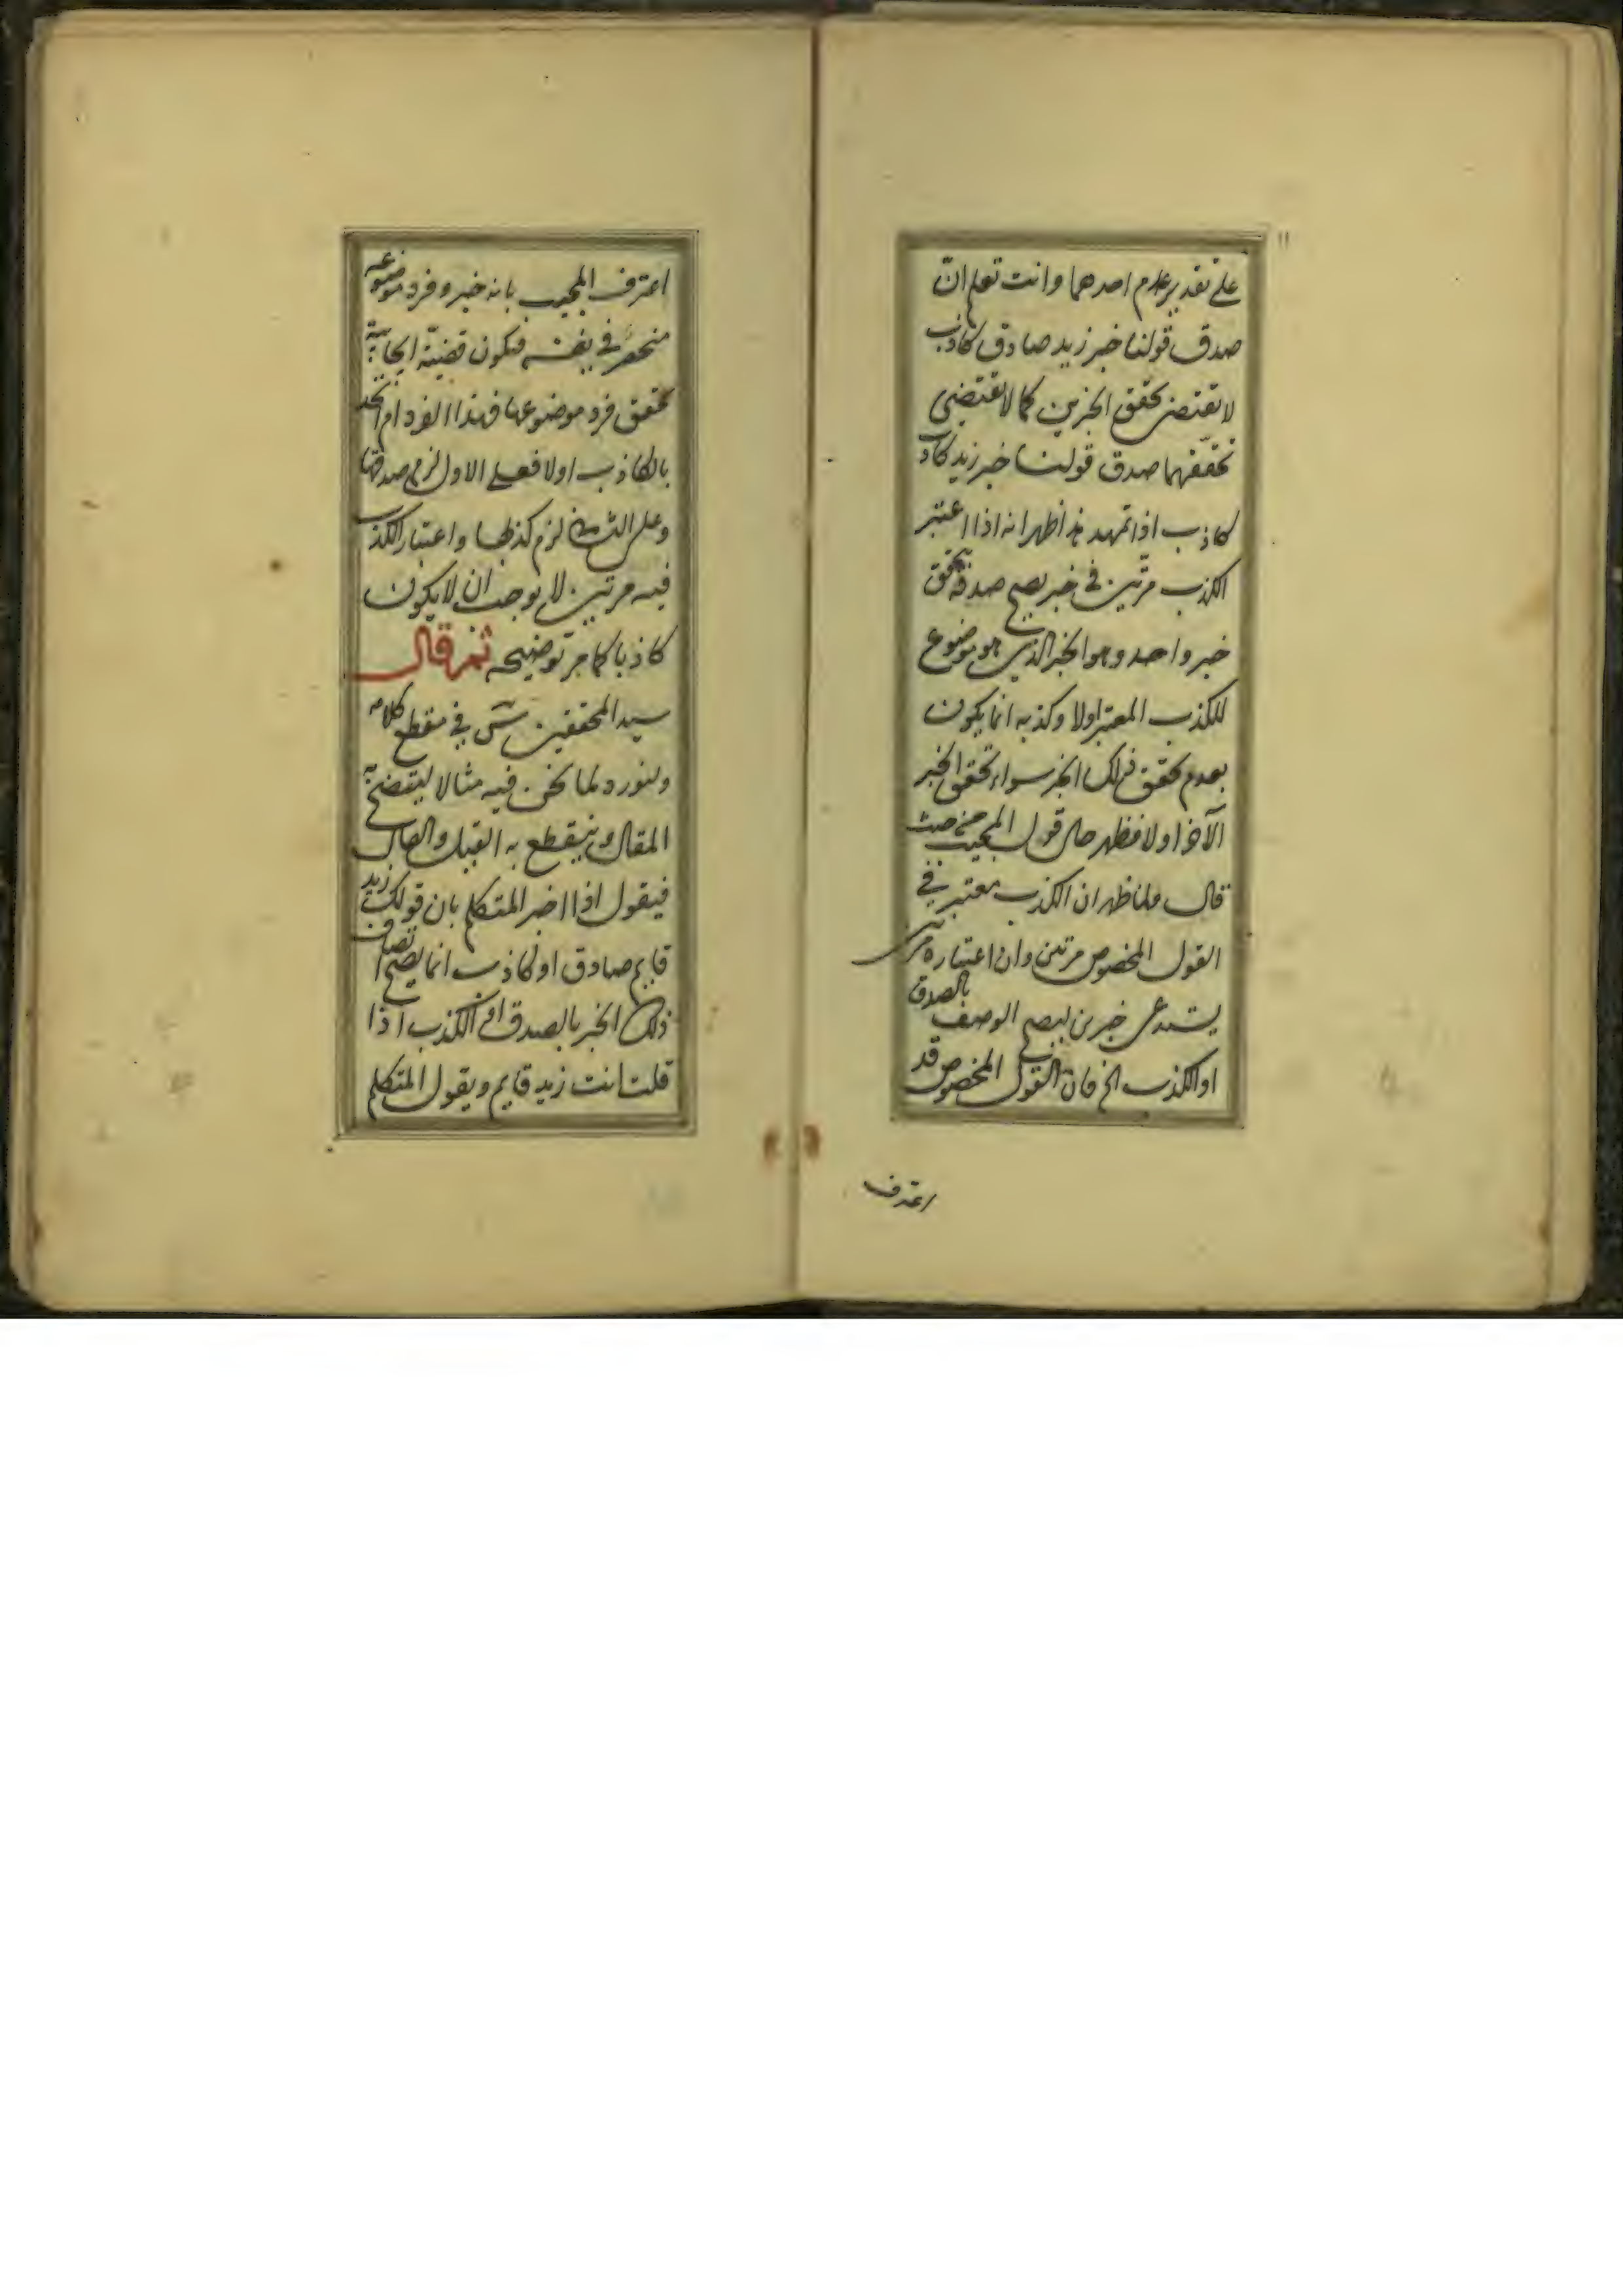 ۱۱
على تقدير عدم احدهما وانت تعلم انّ
صدق قولنا خبر زيد صادق كاذب
لا يقتضى تحقق الخبرين كما لا تقتضى
تحققهما صدق قولنا خبر زيد كاذ
كاذب اذا تمهد هذا ظهر انه اذا اعتبر
الكذب مرتين فى خبر يصح صدقه تحقق
خبر واحد وهو الخبر الذى هو موضوع
للكذب المعتبر اولا وكذبه انما يكون
بعدم تحقق ذلك الخبر سواء تحقق الخبر
الآخر اولا فظهر حال قول المجيب حيث
قال فلما ظهر ان الكذب معتبر فى
القول المخصوص مرتين وان اعتباره مرتين
يستدعى خبرين ليصح الوصف بالصدق
او الكذب الخ فان القول المخصوص قد
اعترف
اعترف المجيب بانه خبر وفرد موضوعه
منحصر فى نفسه فيكون قضيّة ايجابية
تحقق فرد موضوعها فهذا الفرد ام اتحد
بالكاذب اولا فعلى الاول لزم صدقها
وعلى الثانى لزم كذبها واعتبار الكذب
فيه مرتين لا يوجب ان لا يكون
كاذبا كما مر توضيحه ثم قال
سيد المحققين فى مقطع كلامه
ولنورد لما نحن فيه مثالا ليتضح به
المقال وينقطع به القيل والقال
فيقول اذا اخبر المتكلم بان قولك زيد
قايم صادق او كاذب انما يصح اتصاف
ذلك الخبر بالصدق او الكذب اذا
قلت انت زيد قايم ويقول المتكلم